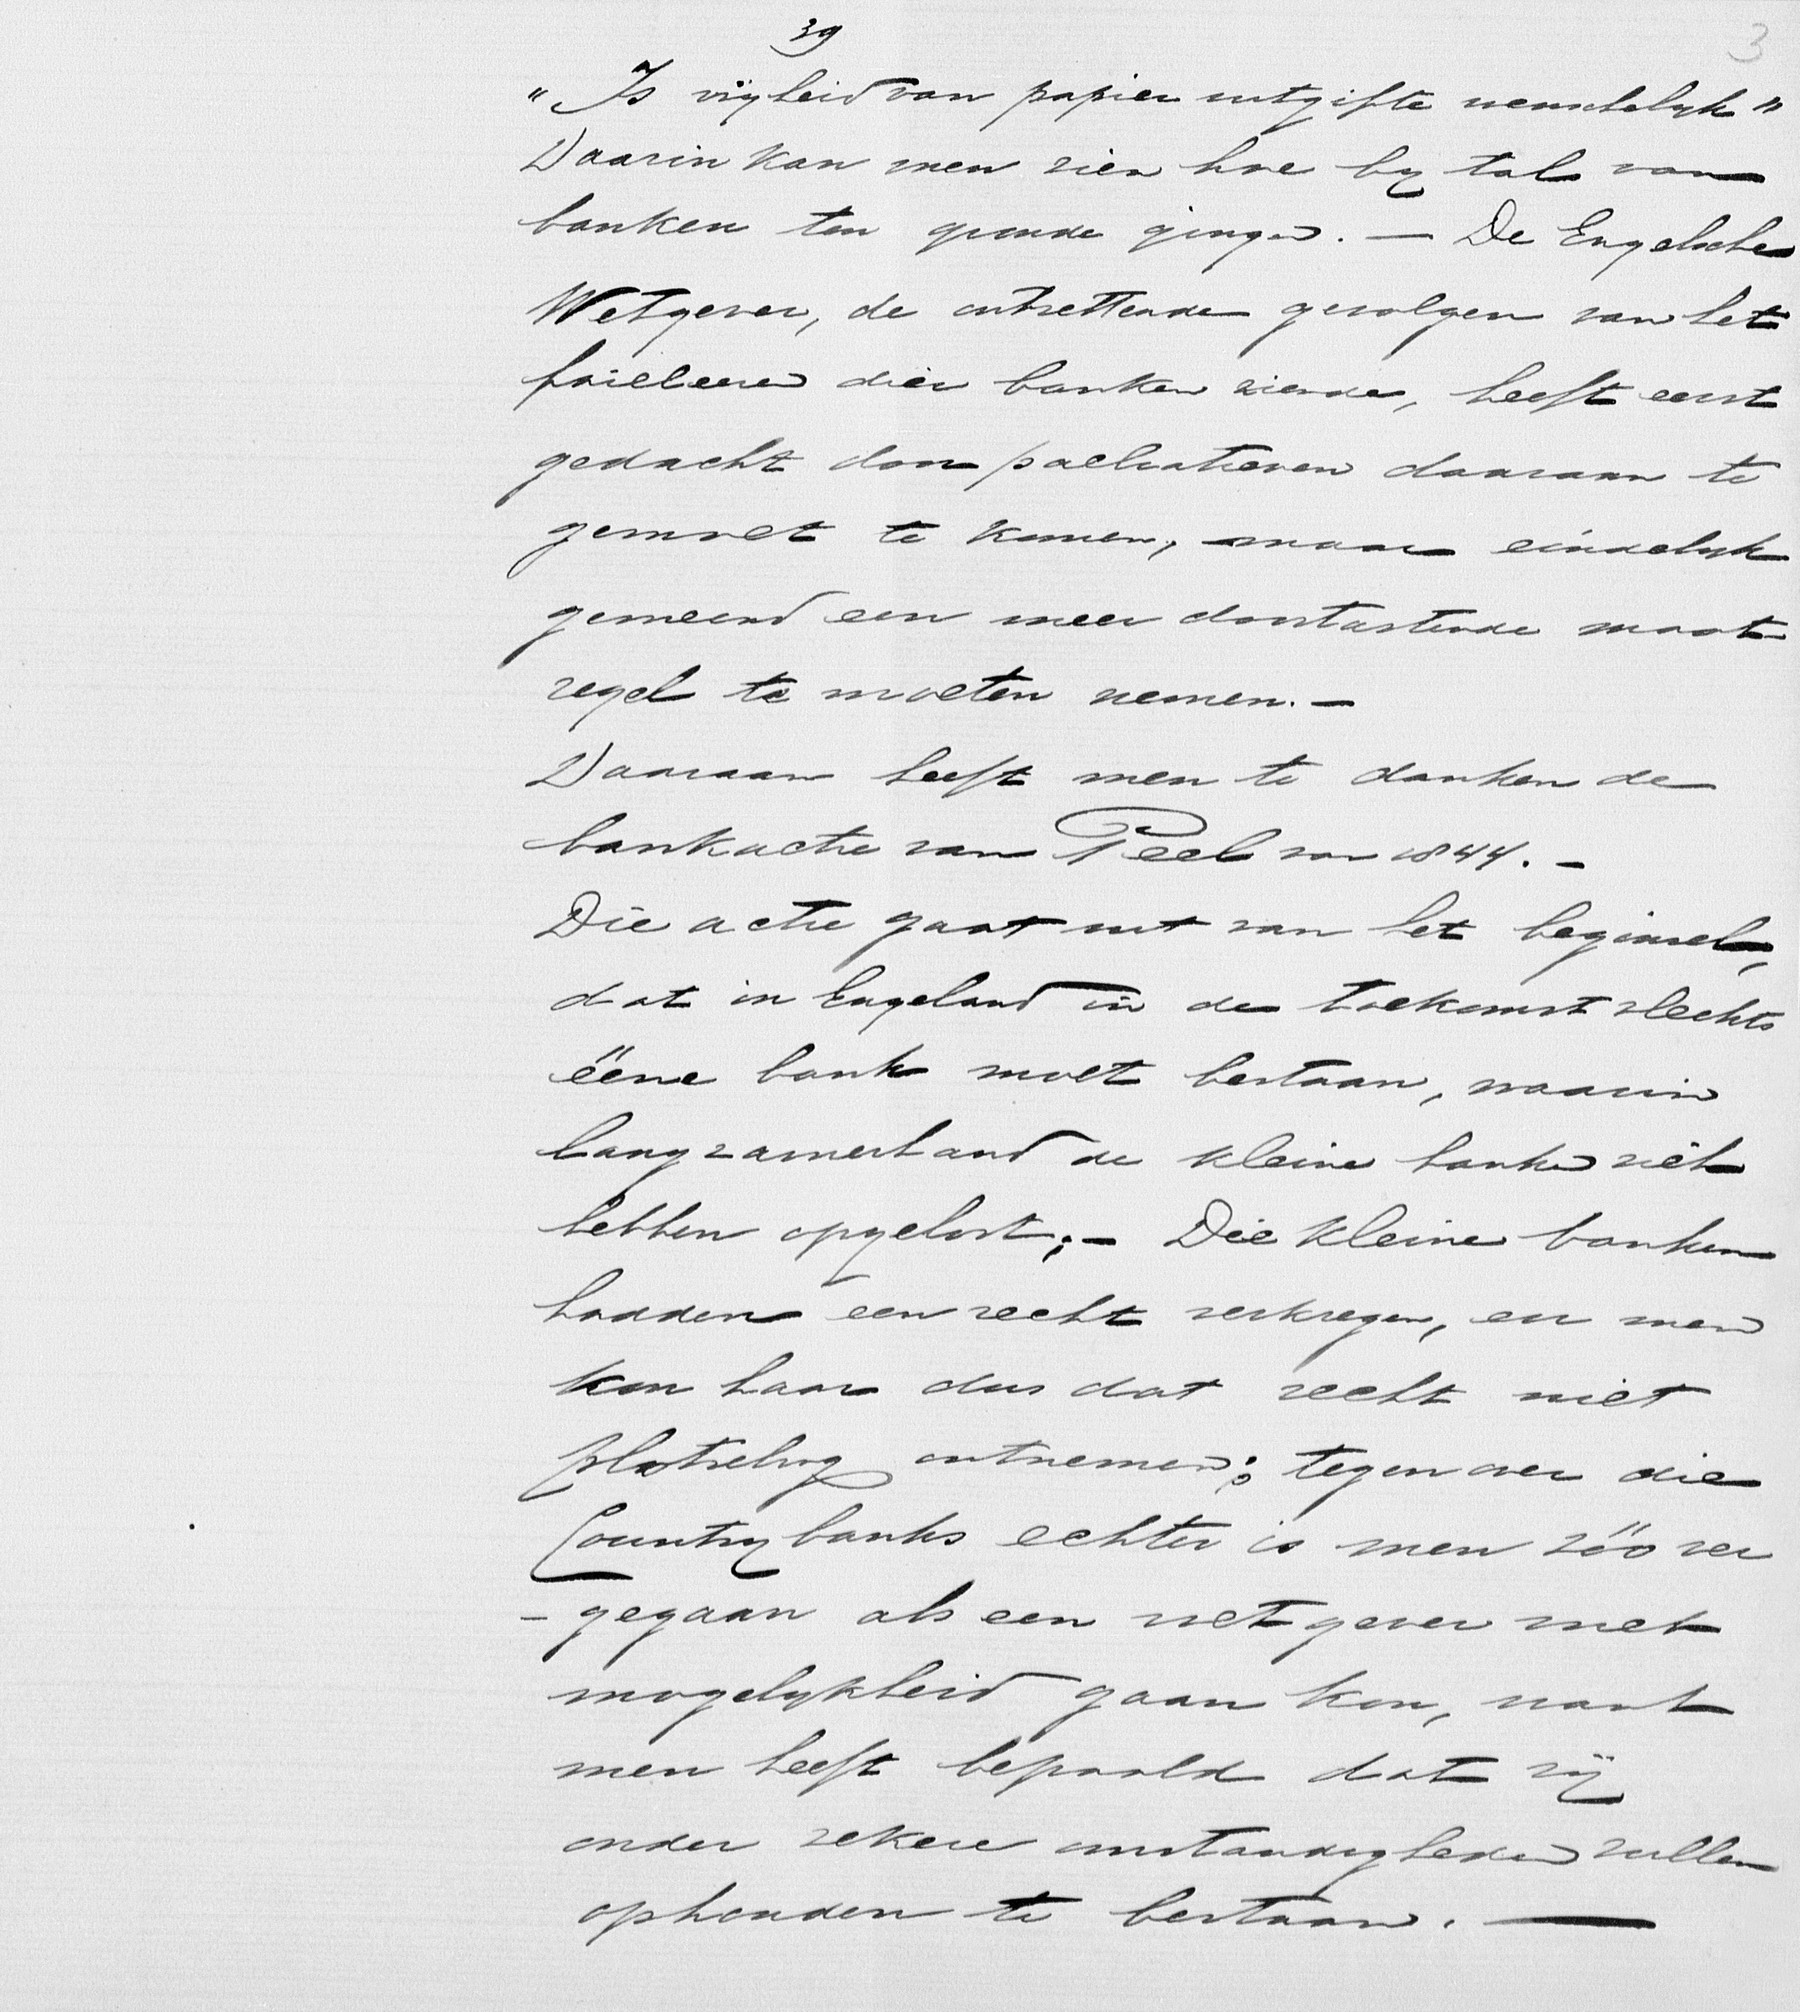 39
3
"Is vrijheid van papier uitgifte wenschelijk"
Daarin kan men zien hoe bij tal van
banken ten gronde gingen. — De Engelsche
Wetgever, de ontzettende gevolgen van het
failleeren dier banken ziende, heeft eerst
gedacht door palliatieven daaraan te
gemoet te komen, maar eindelijk
gemeend een meer doortastende maat
regel te moeten nemen. —
Daaraan heeft men te danken de
bankactie van Peel van 1844. —
Die actie gaat uit van het beginsel,
dat in Engeland in de toekomst slechts
ééne bank moet bestaan, waarin
langzamerhand de kleine banken zich
hebben opgelost; — Die kleine banken
hadden een recht verkregen, en men
kon haar dus dat recht niet
plotseling ontnemen; tegenover die
Country banks echter is men zóó ver
- gegaan als een wetgever met
mogelijkheid gaan kon, want
men heeft bepaald dat zij
onder zekere omstandigheden zullen
ophouden te bestaan. —